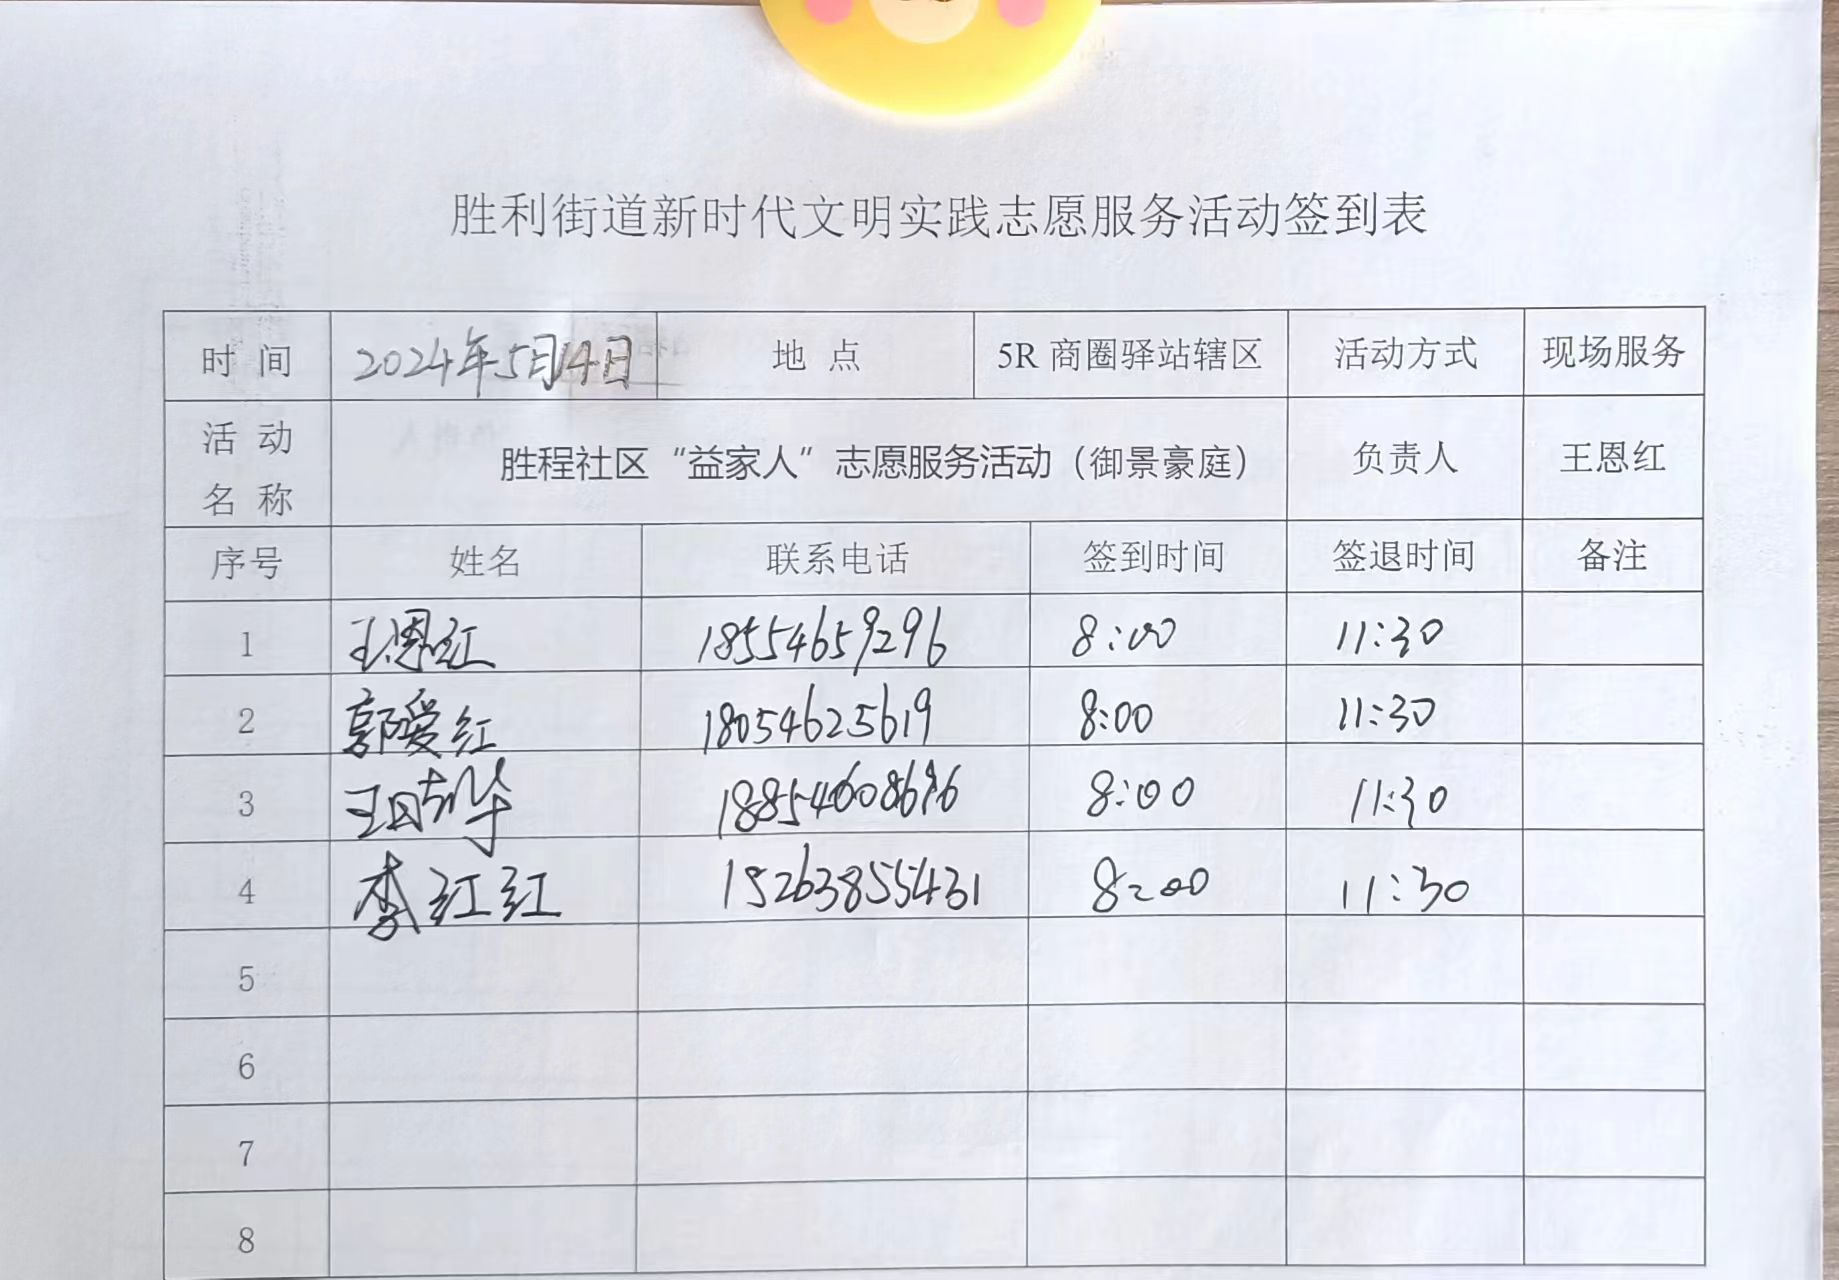 胜利街道新时代文明实践志愿服务活动签到表
时 间 2024年5月14日 地 点 5R 商圈驿站辖区 活动方式 现场服务
活 动 名 称 胜程社区“益家人”志愿服务活动（御景豪庭） 负责人 王恩红
序号 姓名 联系电话 签到时间 签退时间 备注
1 王恩红 18554659296 8:00 11:30
2 郭爱红 18054625619 8:00 11:30
3 8:00 11:30
4 李红红 15263855431 8:00 11:30
5
6
7
8